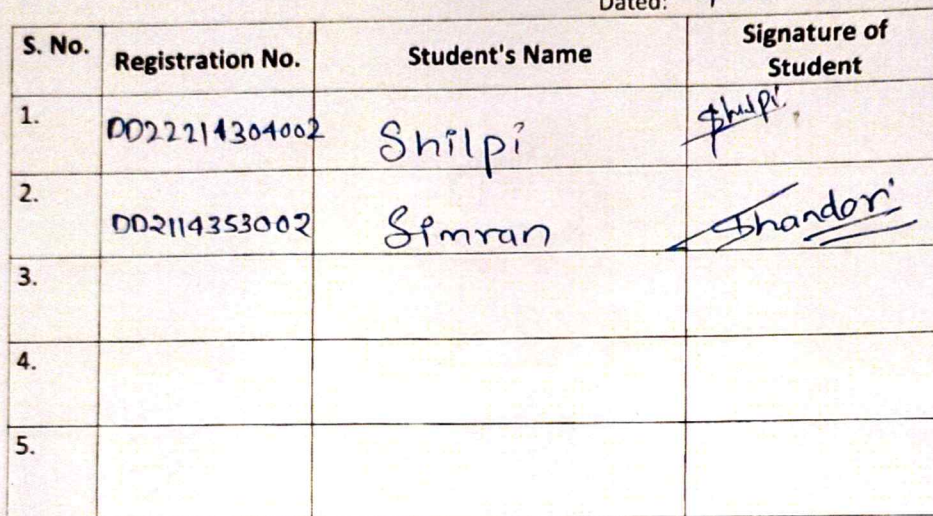 Dated:
S. No. Registration No. Student's Name Signature of Student
1. DD22214304002 Shilpi Shilpi
2. DD2114353002 Simran
3.
4.
5.